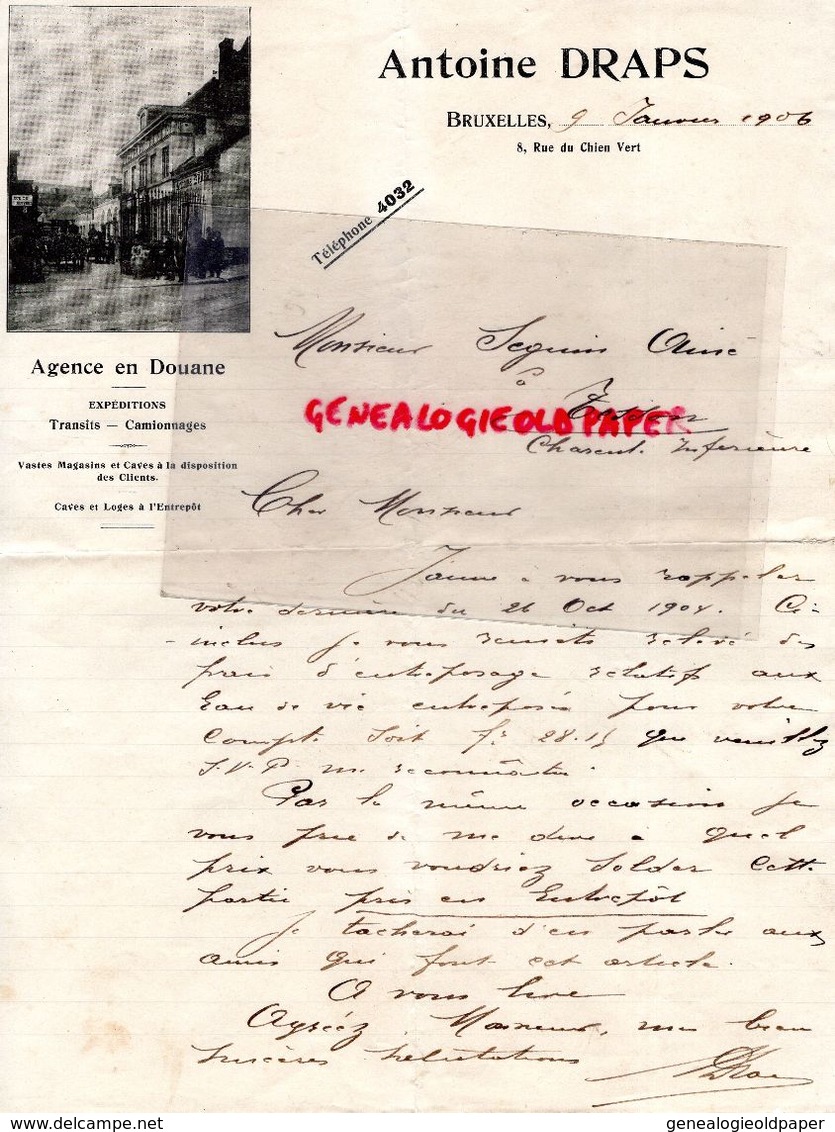 Antoine DRAPS
BRUXELLES, 9 Janvier 1906
8, Rue du Chien Vert
Téléphone 4032
Agence en Douane
EXPÉDITIONS
Transits — Camionnages
Vastes Magasins et Caves à la disposition
des Clients.
Caves et Loges à l'Entrepôt
Monsieur Seguin Ainé
à
GENEALOGIEOLDPAPER
Charente Inferieure
Cher Monsieur
J'aime à vous rappeler
votre dernière du 26 Oct 1904. Ci-
inclus je vous remets relevé des
frais d'entreposage relatifs aux
Eau de vie entreposés pour votre
Compte Soit fr 28.15 que veuillez
S.V.P. me reconnaitre.
Par la même occasion je
vous prie de me dire à quel
prix vous voudriez Solder Cette
partie pris en Entrepôt
Je tacherai d'en parler aux
amis qui font cet article.
A vous lire
Agréez, Monsieur, mes bien
Sincères Salutations
Draps
genealogieoldpaper